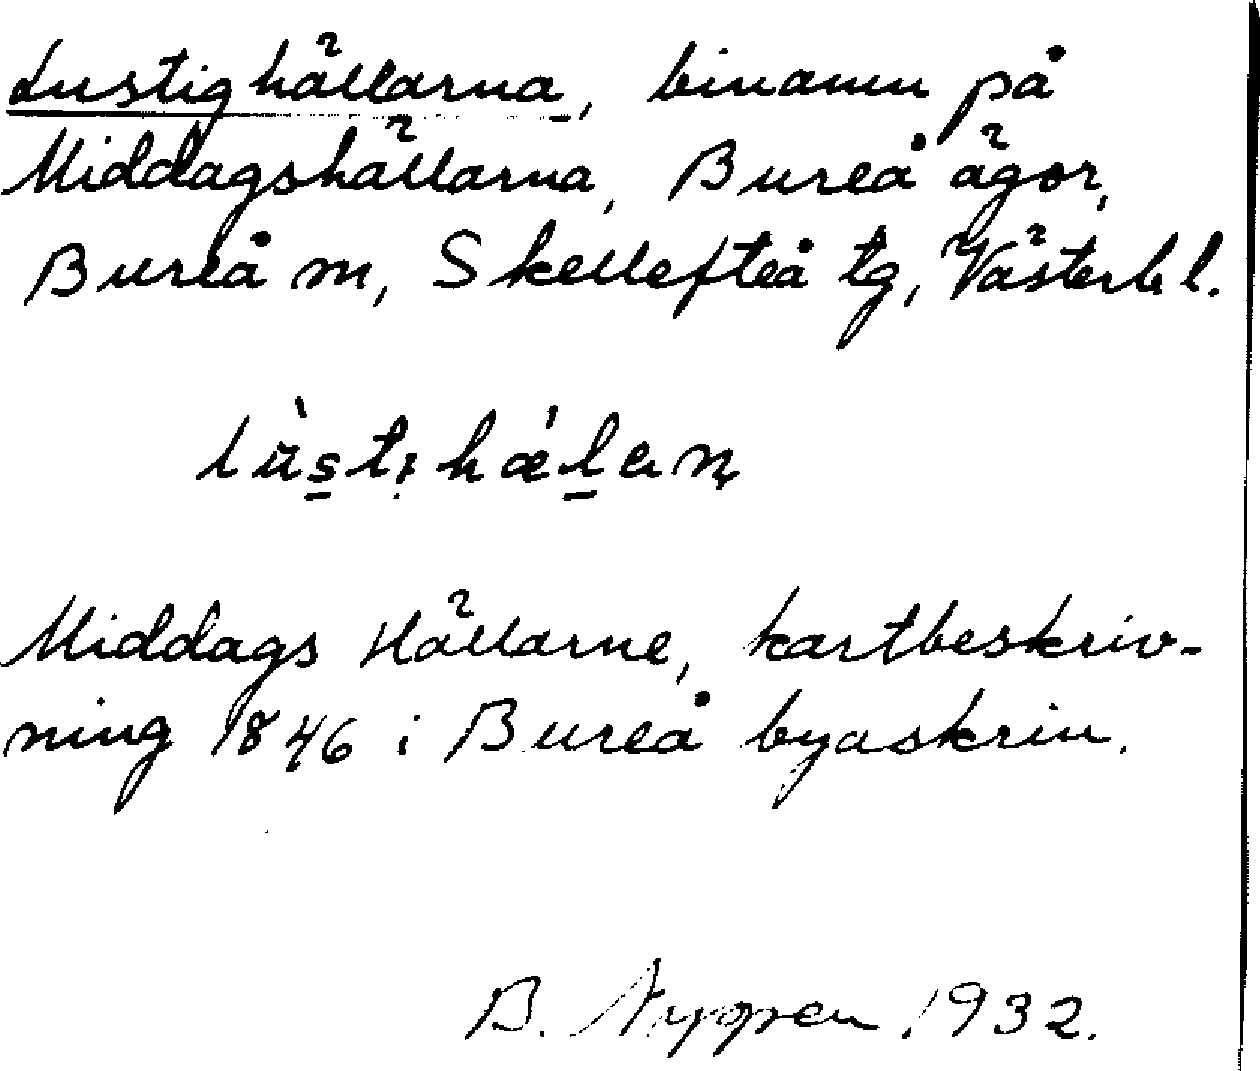 Lustighällarna, binamn på
Middagshällarna, Bureå ägor,
Bureå m, Skellefteå tg, Västerb l.
Middags Hällarne, kartbeskriv-
ning 1846 i Bureå byaskrin.
B. Nygren 1932.